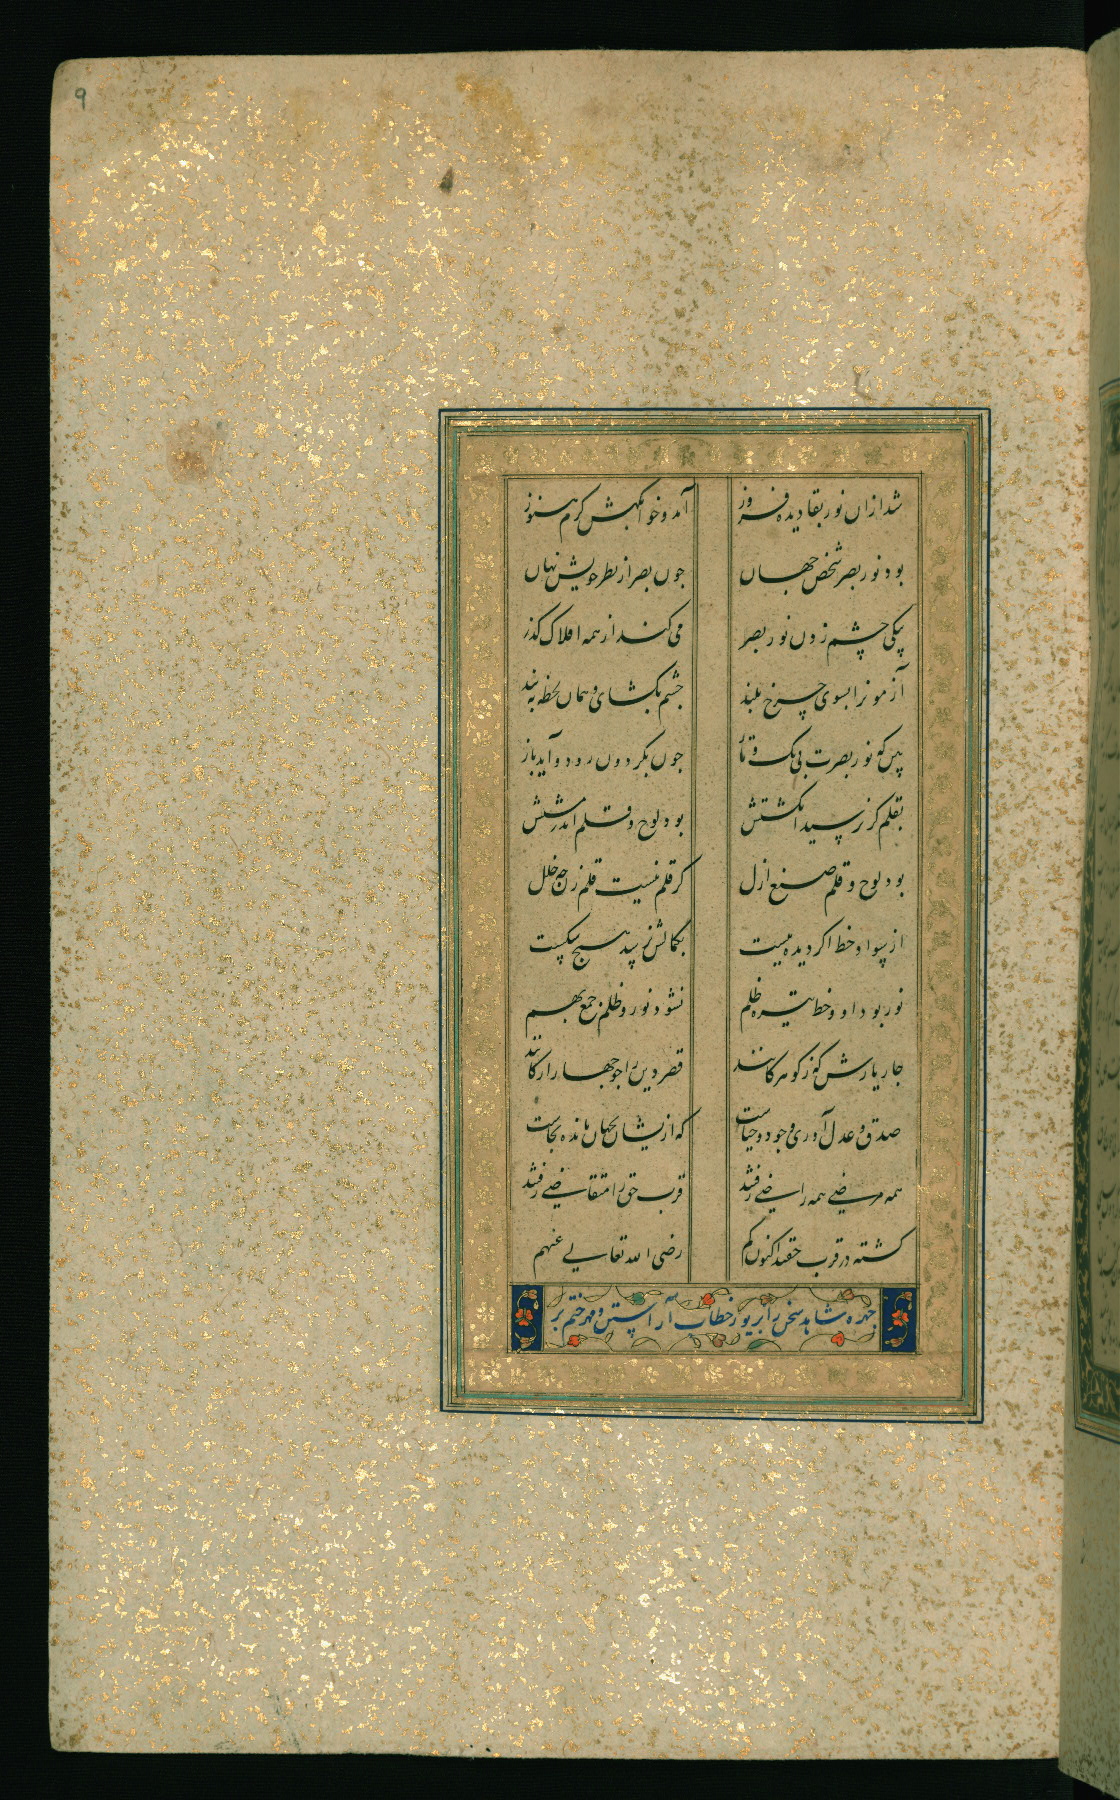 9
شد ازان نور بقا دیده فروز آمد و خوابگهش گرم هنوز
بود نور بصر شخص جهان چون بصر از نظر خویش نهان
پیکی چشم زدن نور بصر می کند از همه افلاک گذر
آزمون را بسوی چرخ بلند چشم بگشای و همان لحظه ببند
بین که نور بصرت بی تک و تاز چون بگردون رود و آید باز
بقلم گر نرسید انگشتش بود لوح و قلم اندر مشتش
بود لوح و قلم صنع ازل گر قلم نیست قلم زن چه خلل
از سواد خط اگر دیده ببست بکمالش نرسد هیچ شکست
نور بود او و خط تیره ظلم نشود نور و ظلم جمع بهم
چار یارش که ز گوهر کانند قصر دین را چو چهار ارکانند
صدق و عدل آوری وجود و حیاست که ازیشان بجهان مانده بجاست
همه مرضی همه راضی رفتند قرب حق را متقاضی رفتند
گشته در قرب حقند اکنون گم رضی الله تعالی عنهم
چهره شاهد سخن را بزیور خطاب آراستن و مهر ختم بر